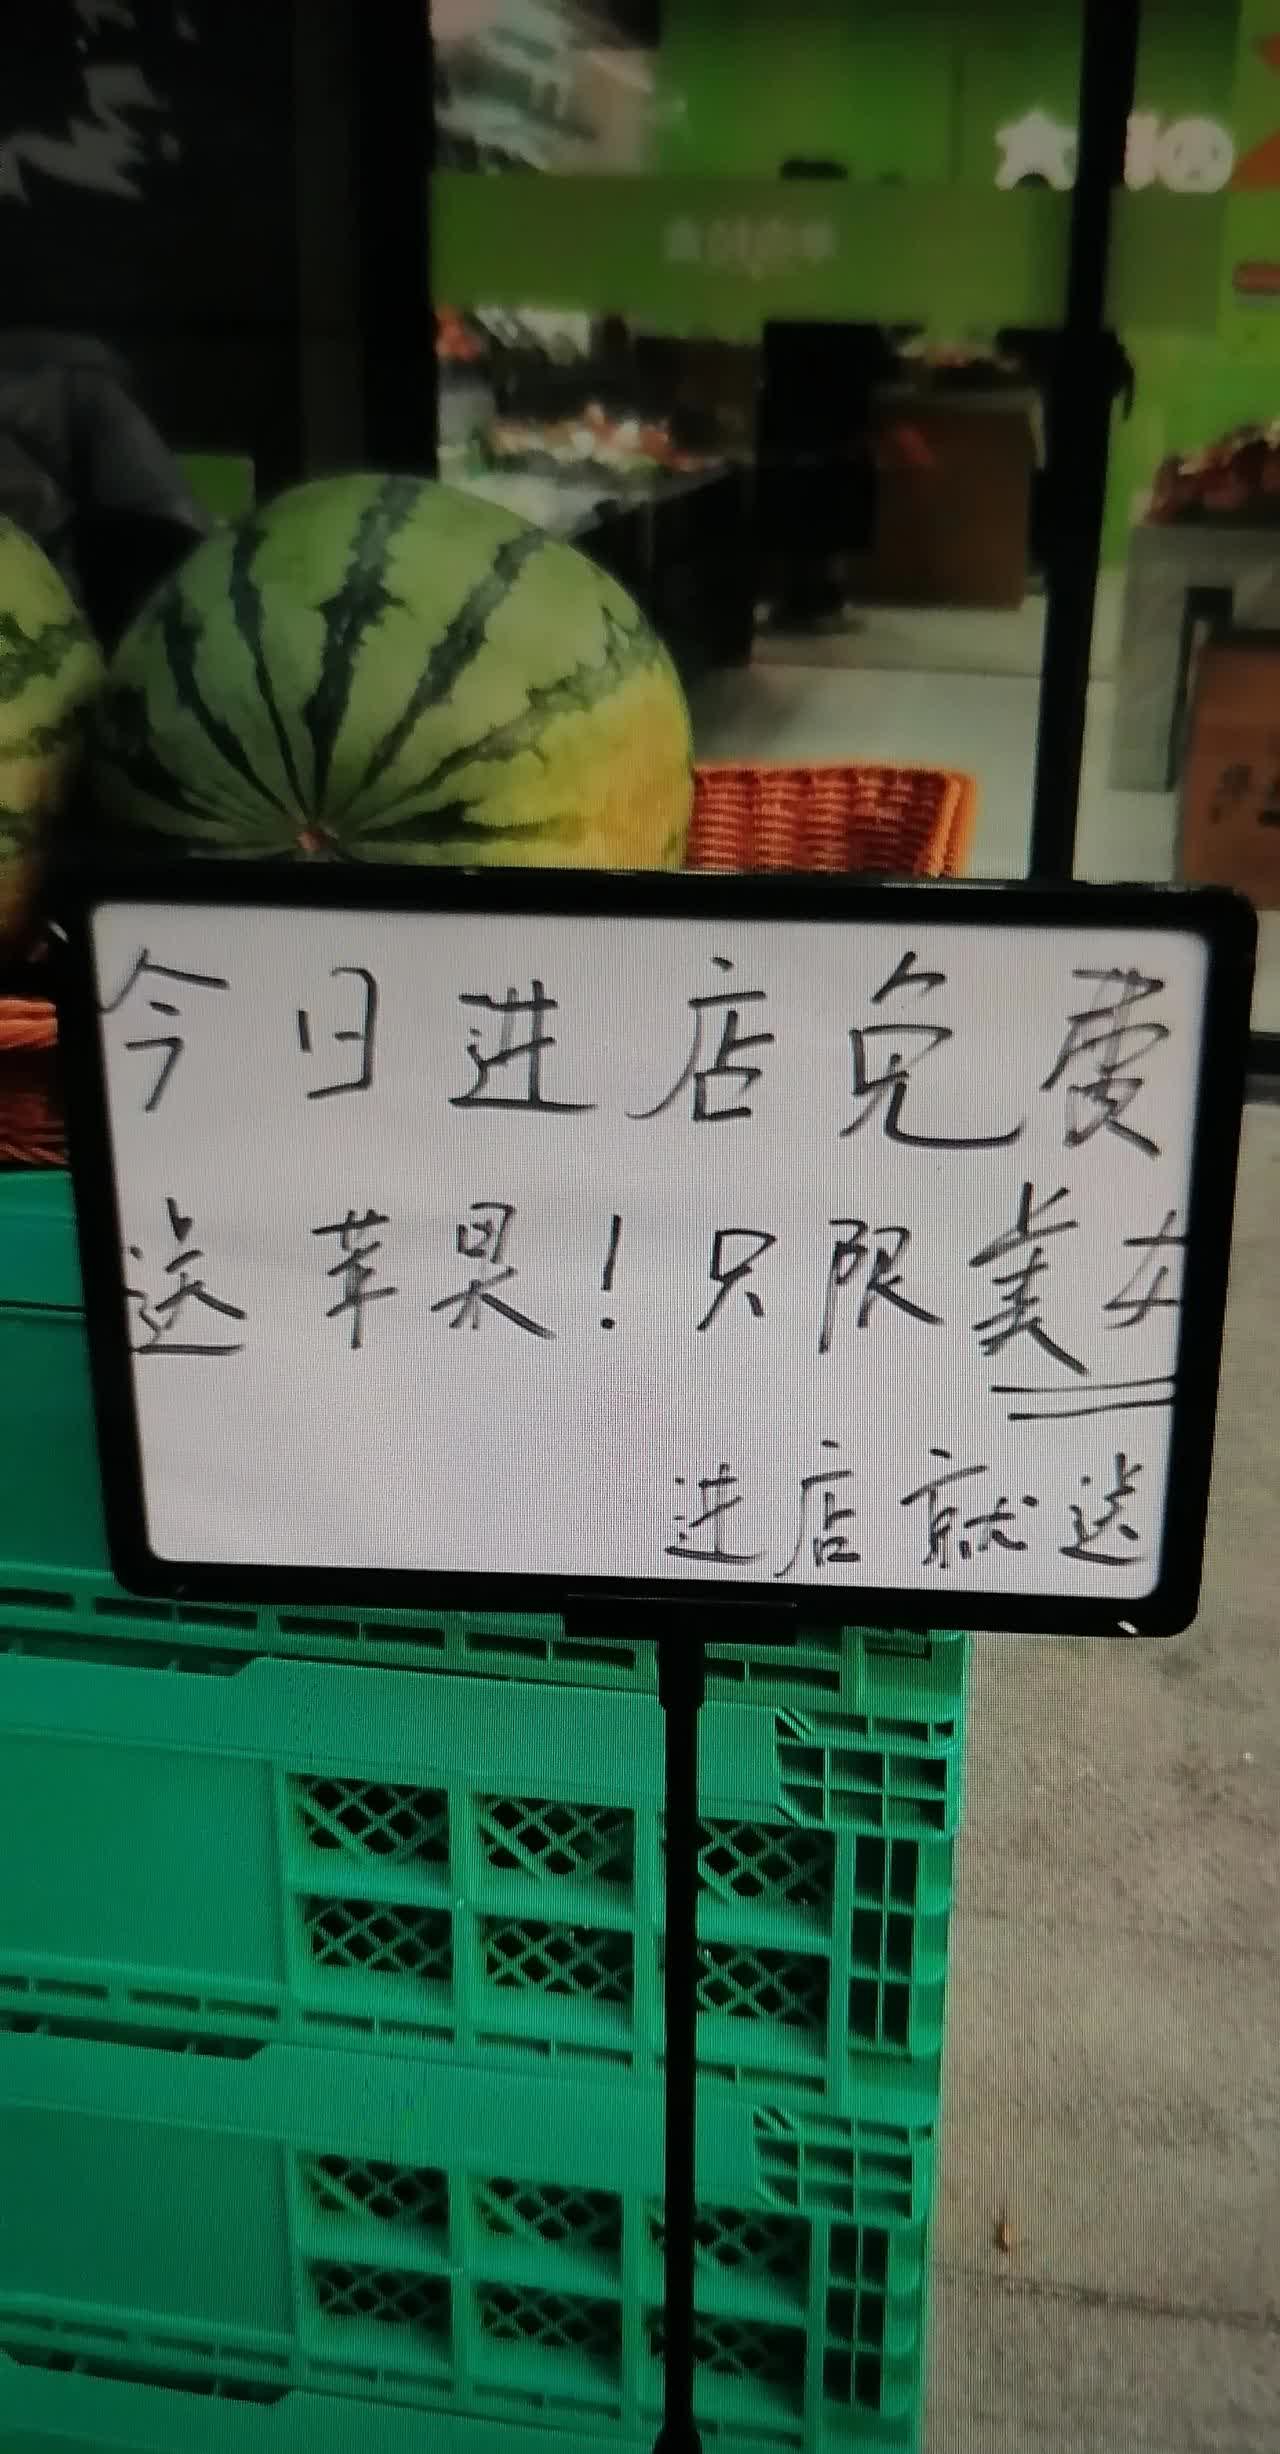 今日进店免费
送苹果！只限美女
进店就送